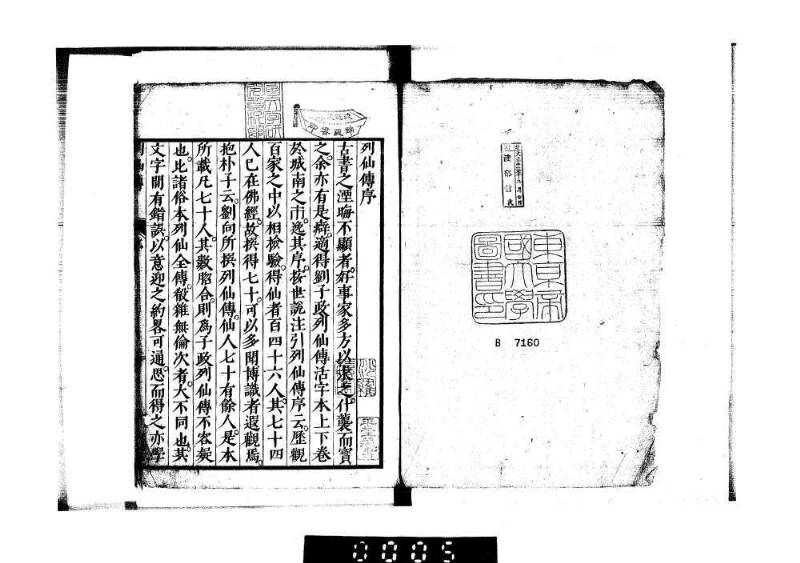 東京帝
國大學
圖書印
B 7160
列仙傳序
古書之湮晦不顯者。好事家多方以求之。什襲而寶
之。余亦有是癖。適得劉子政列仙傳活字本上下卷
於城南之市。逸其序。按世說注引列仙傳序云。歷觀
百家之中以相檢驗。得仙者百四十六人。其七十四
人已在佛經。故撰得七十。可以多聞博識者遐觀焉。
抱朴子云。劉向所撰列仙傳。仙人七十有餘人。是本
所載凡七十人。其數脗合。則爲子政列仙傳不容疑
也。此諸俗本列仙全傳。。雜無倫次者。大不同也。其
文字間有錯誤。以意迎之。約畧可通。思而得之。亦學
0005